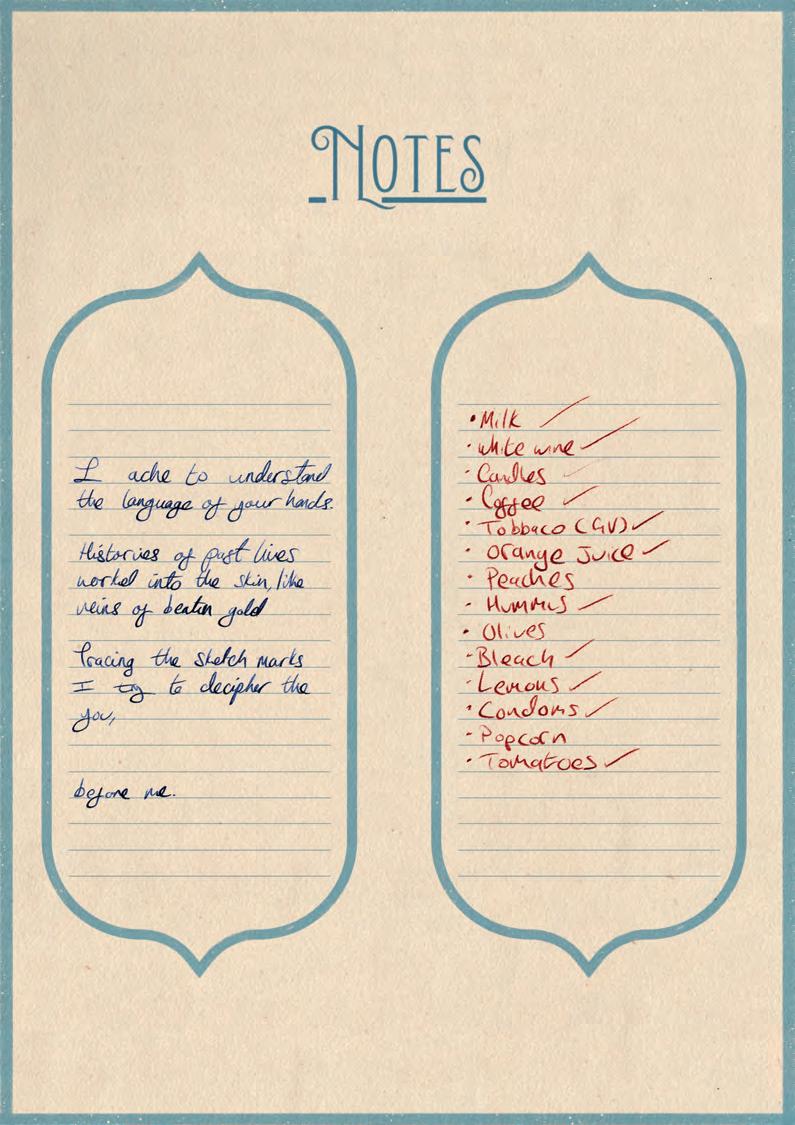 NOTES
I ache to understand
the language of your hands.
Histories of past lives
worked into the skin, like
veins of beaten gold
Tracing the sketch marks
I try to decipher the
you,
before me.
• Milk ✓
• White wine ✓
• Candles ✓
• Coffee ✓
• Tobbaco (GV) ✓
• Orange Juice ✓
• Peaches
• Hummus ✓
• Olives
• Bleach ✓
• Lemons ✓
• Condoms ✓
• Popcorn
• Tomatoes ✓